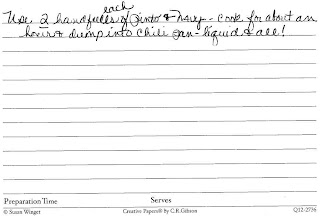 each
Use 2 handfulls of pinto & Navy - Cook for about an
hour & dump into Chili pan - liquid & all!
Preparation Time Serves
© Susan Winget Creative Papers® by C.R. Gibson Q12-2736